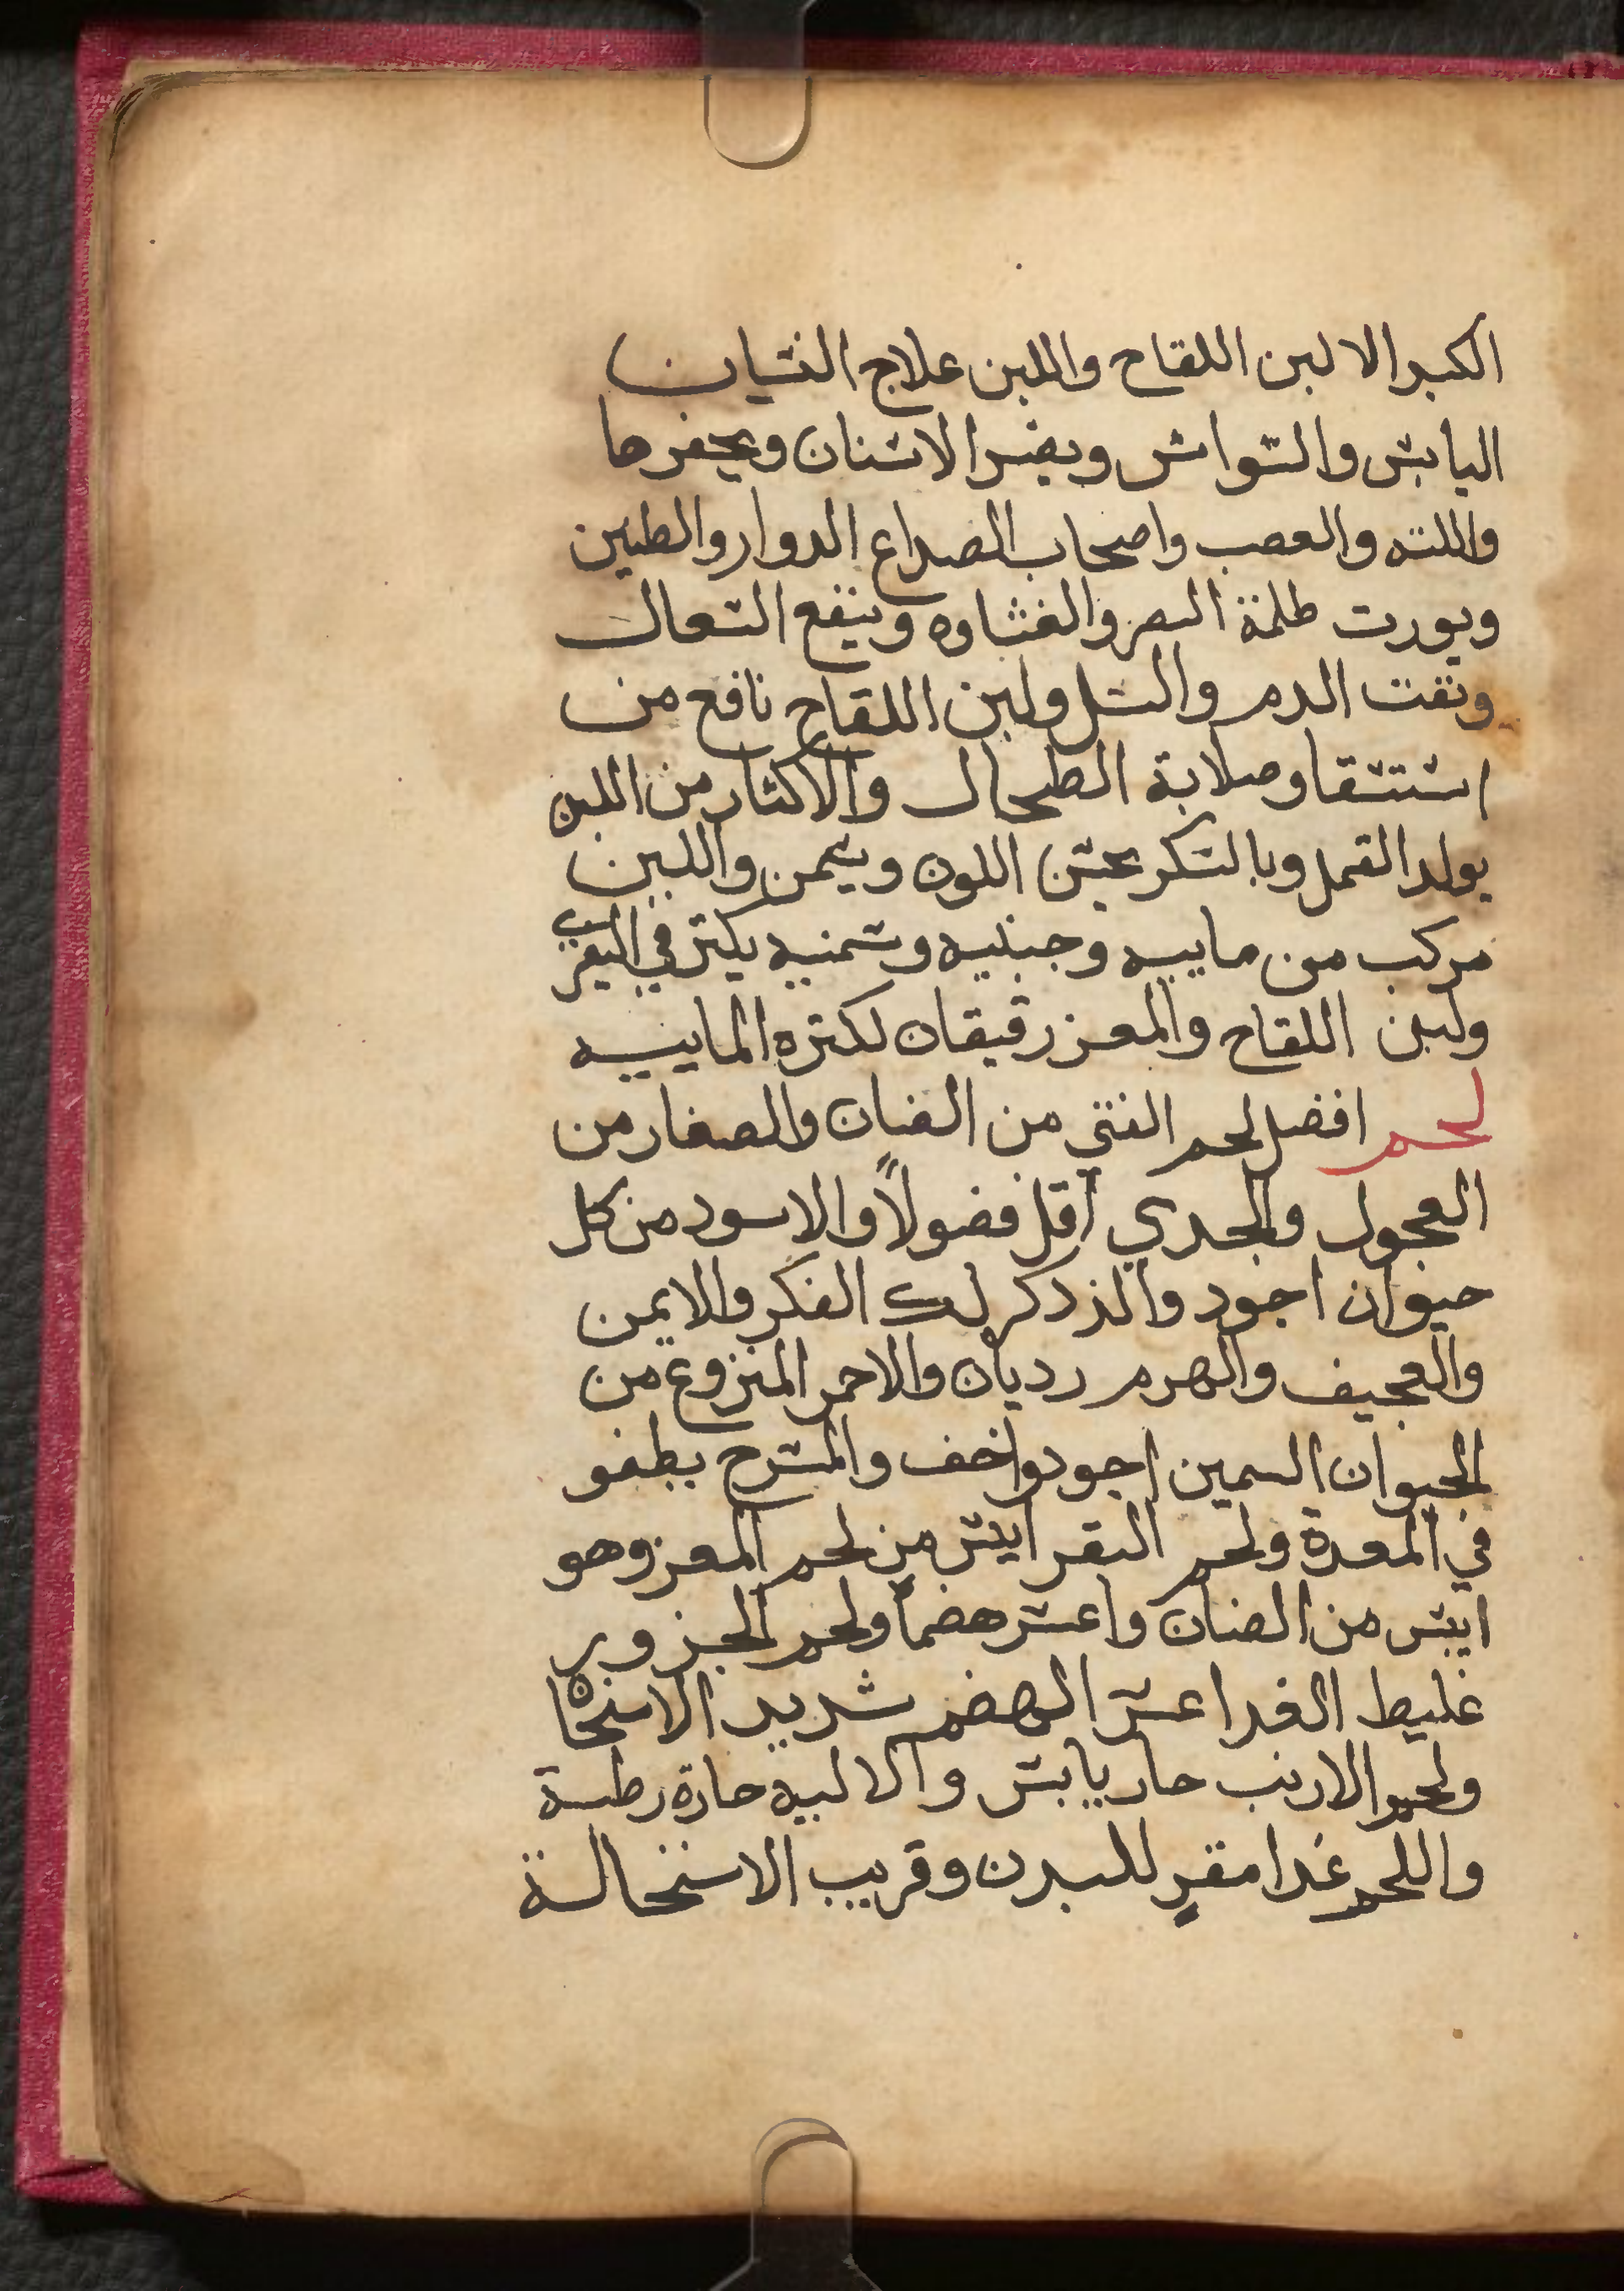 الكبد الا لبن اللقاح واللبن علاج النسيان
اليابس والسواس ويضر الاسنان ويحفرها
واللثه والعصب واصحاب الصداع الدوار والطنين
ويورت ظلمة البصر والغشاوه وينفع السعال
ونفت الدم والسل ولبن اللقاح نافع من
استسقا وصلابة الطحال والاكثار من اللبن
يولد القمل وبالسكر يحسن اللون ويسمن واللبن
مركب من ماييه وجبنيه وسمنيه يكتر في البقري
ولبن اللقاح والمعز رقيقان لكتره الماييه
لحم افضل لحم الفتي من الضان والصغار من
العجول والجدي اقل فضولاً والاسود من كل
حيوان اجود والذكر لك الفكر والايمن
والعجيف والهرم رديان والاحمر المنزوع من
الحيوان السمين اجود واخف والمسرح يطفو
في المعدة ولحم البقر ايبس من لحم المعز وهو
ايبس من الضان واعسر هضماً ولحم الجزور
غليط الغدا عسر الهضم شديد الاسخان
ولحم الارنب حار يابس والاليه حارة رطبة
واللحم غدا مقوٍ للبدن وقريب الاستحالة